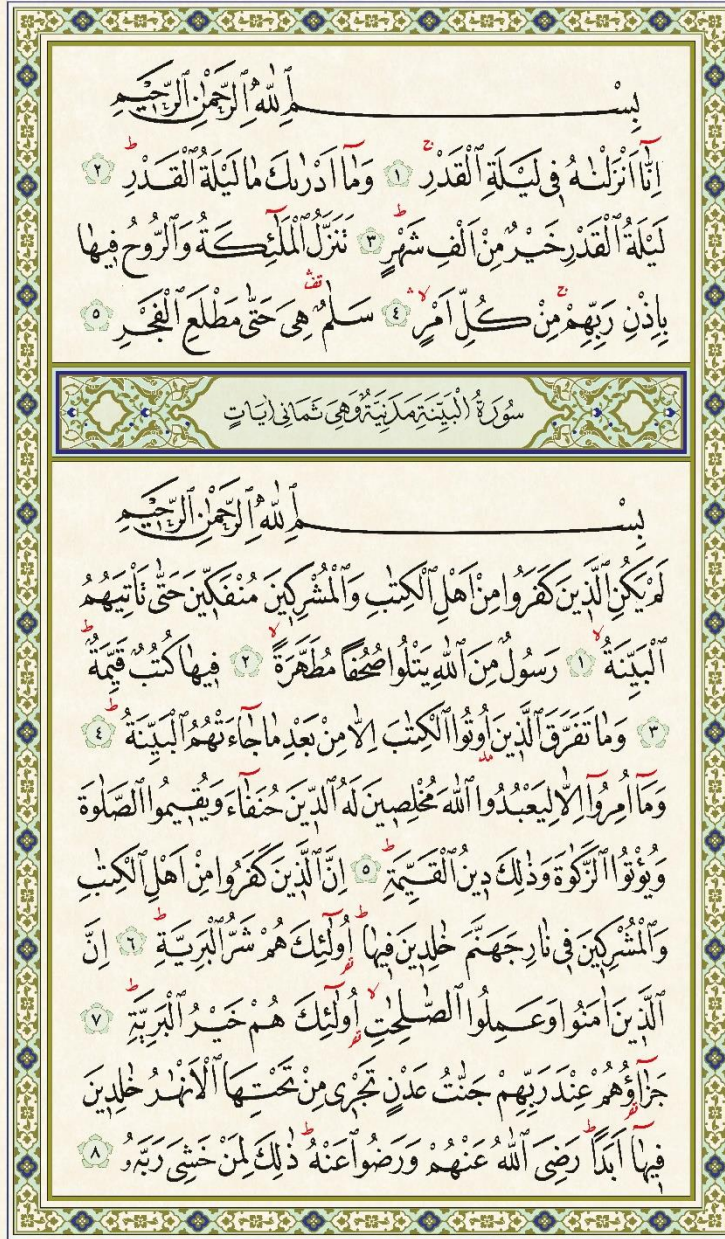 بِسْمِ اللّٰهِ الرَّحْمٰنِ الرَّحِيمِ
اِنَّٓا اَنْزَلْنَاهُ ف۪ي لَيْلَةِ الْقَدْرِۚ ﴿١﴾ وَمَٓا اَدْرٰيكَ مَا لَيْلَةُ الْقَدْرِۜ ﴿٢﴾
لَيْلَةُ الْقَدْرِ خَيْرٌ مِنْ اَلْفِ شَهْرٍۜ ﴿٣﴾ تَنَزَّلُ الْمَلٰٓئِكَةُ وَالرُّوحُ ف۪يهَا
بِاِذْنِ رَبِّهِمْۚ مِنْ كُلِّ اَمْرٍۙۛ ﴿٤﴾ سَلَامٌ۠ هِيَ حَتّٰى مَطْلَعِ الْفَجْرِ ﴿٥﴾
سُورَةُ الْبَيِّنَةِ مَدَنِيَّةٌ وَهِيَ ثَمَانِي اٰيَاتٍ
بِسْمِ اللّٰهِ الرَّحْمٰنِ الرَّحِيمِ
لَمْ يَكُنِ الَّذ۪ينَ كَفَرُوا مِنْ اَهْلِ الْكِتَابِ وَالْمُشْرِك۪ينَ مُنْفَكّ۪ينَ حَتّٰى تَأْتِيَهُمُ
الْبَيِّنَةُۙ ﴿١﴾ رَسُولٌ مِنَ اللّٰهِ يَتْلُوا صُحُفًا مُطَهَّرَةًۙ ﴿٢﴾ ف۪يهَا كُتُبٌ قَيِّمَةٌۜ
﴿٣﴾ وَمَا تَفَرَّقَ الَّذ۪ينَ اُو۫تُوا الْكِتَابَ اِلَّا مِنْ بَعْدِ مَا جَٓاءَتْهُمُ الْبَيِّنَةُۜ ﴿٤﴾
وَمَٓا اُمِرُٓوا اِلَّا لِيَعْبُدُوا اللّٰهَ مُخْلِص۪ينَ لَهُ الدّ۪ينَ حُنَفَٓاءَ وَيُق۪يمُوا الصَّلٰوةَ
وَيُؤْتُوا الزَّكٰوةَ وَذٰلِكَ د۪ينُ الْقَيِّمَةِۜ ﴿٥﴾ اِنَّ الَّذ۪ينَ كَفَرُوا مِنْ اَهْلِ الْكِتَابِ
وَالْمُشْرِك۪ينَ ف۪ي نَارِ جَهَنَّمَ خَالِد۪ينَ ف۪يهَاۜ اُو۬لٰٓئِكَ هُمْ شَرُّ الْبَرِيَّةِۜ ﴿٦﴾ اِنَّ
الَّذ۪ينَ اٰمَنُوا وَعَمِلُوا الصَّالِحَاتِۙ اُو۬لٰٓئِكَ هُمْ خَيْرُ الْبَرِيَّةِۜ ﴿٧﴾
جَزَٓاؤُ۬هُمْ عِنْدَ رَبِّهِمْ جَنَّاتُ عَدْنٍ تَجْر۪ي مِنْ تَحْتِهَا الْاَنْهَارُ خَالِد۪ينَ
ف۪يهَٓا اَبَدًاۜ رَضِيَ اللّٰهُ عَنْهُمْ وَرَضُوا عَنْهُۜ ذٰلِكَ لِمَنْ خَشِيَ رَبَّهُ ﴿٨﴾